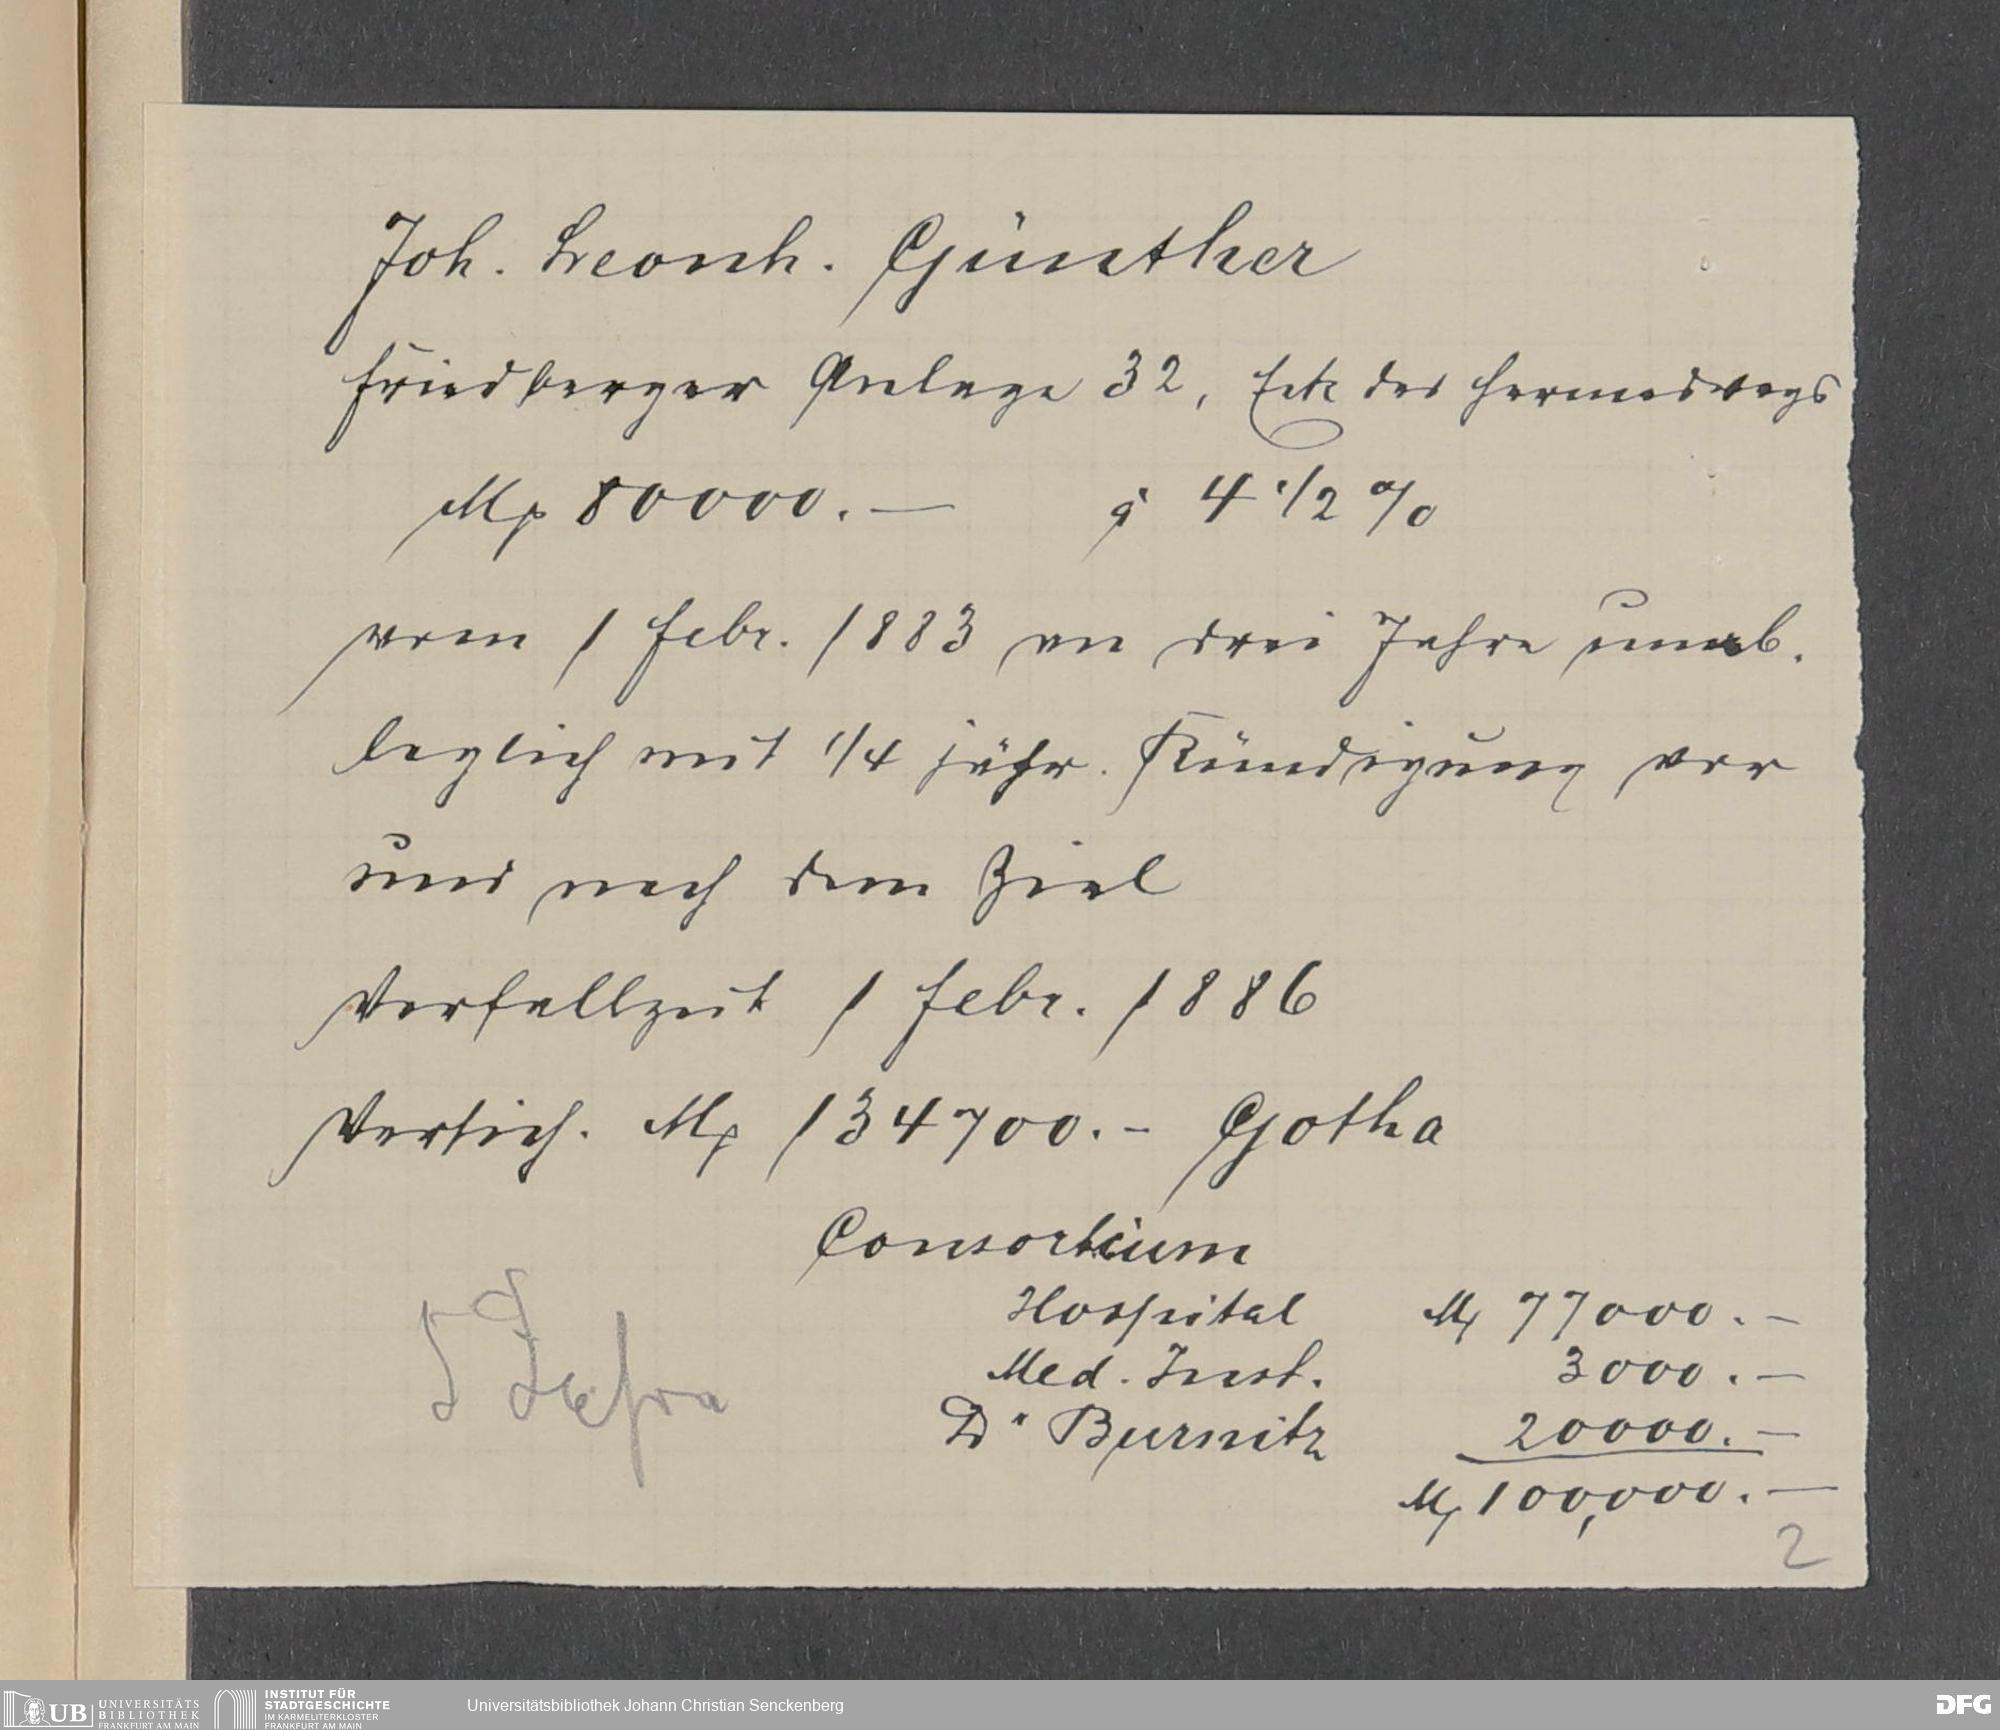 Joh. Leonh. Günther
Friedberger Anlage 32, Ecke des Hermeswegs
M 80000.— à 4 1/2 %
vom 1 Febr. 1883 an drei Jahre unab-
leglich mit 1/4 jähr. Kündigung vor
und nach dem Ziel
Verfallzeit 1 Febr. 1886
Versich. M 134700.- Gotha
Consortium
Hospital M 77000.-
Med. Inst. 3000.-
Dr Burnitz 20000.-
M 100,000.—
5 Jahre
2
UB UNIVERSITÄTS
BIBLIOTHEK
FRANKFURT AM MAIN
INSTITUT FÜR
STADTGESCHICHTE
IM KARMELITERKLOSTER
FRANKFURT AM MAIN
Universitätsbibliothek Johann Christian Senckenberg
DFG